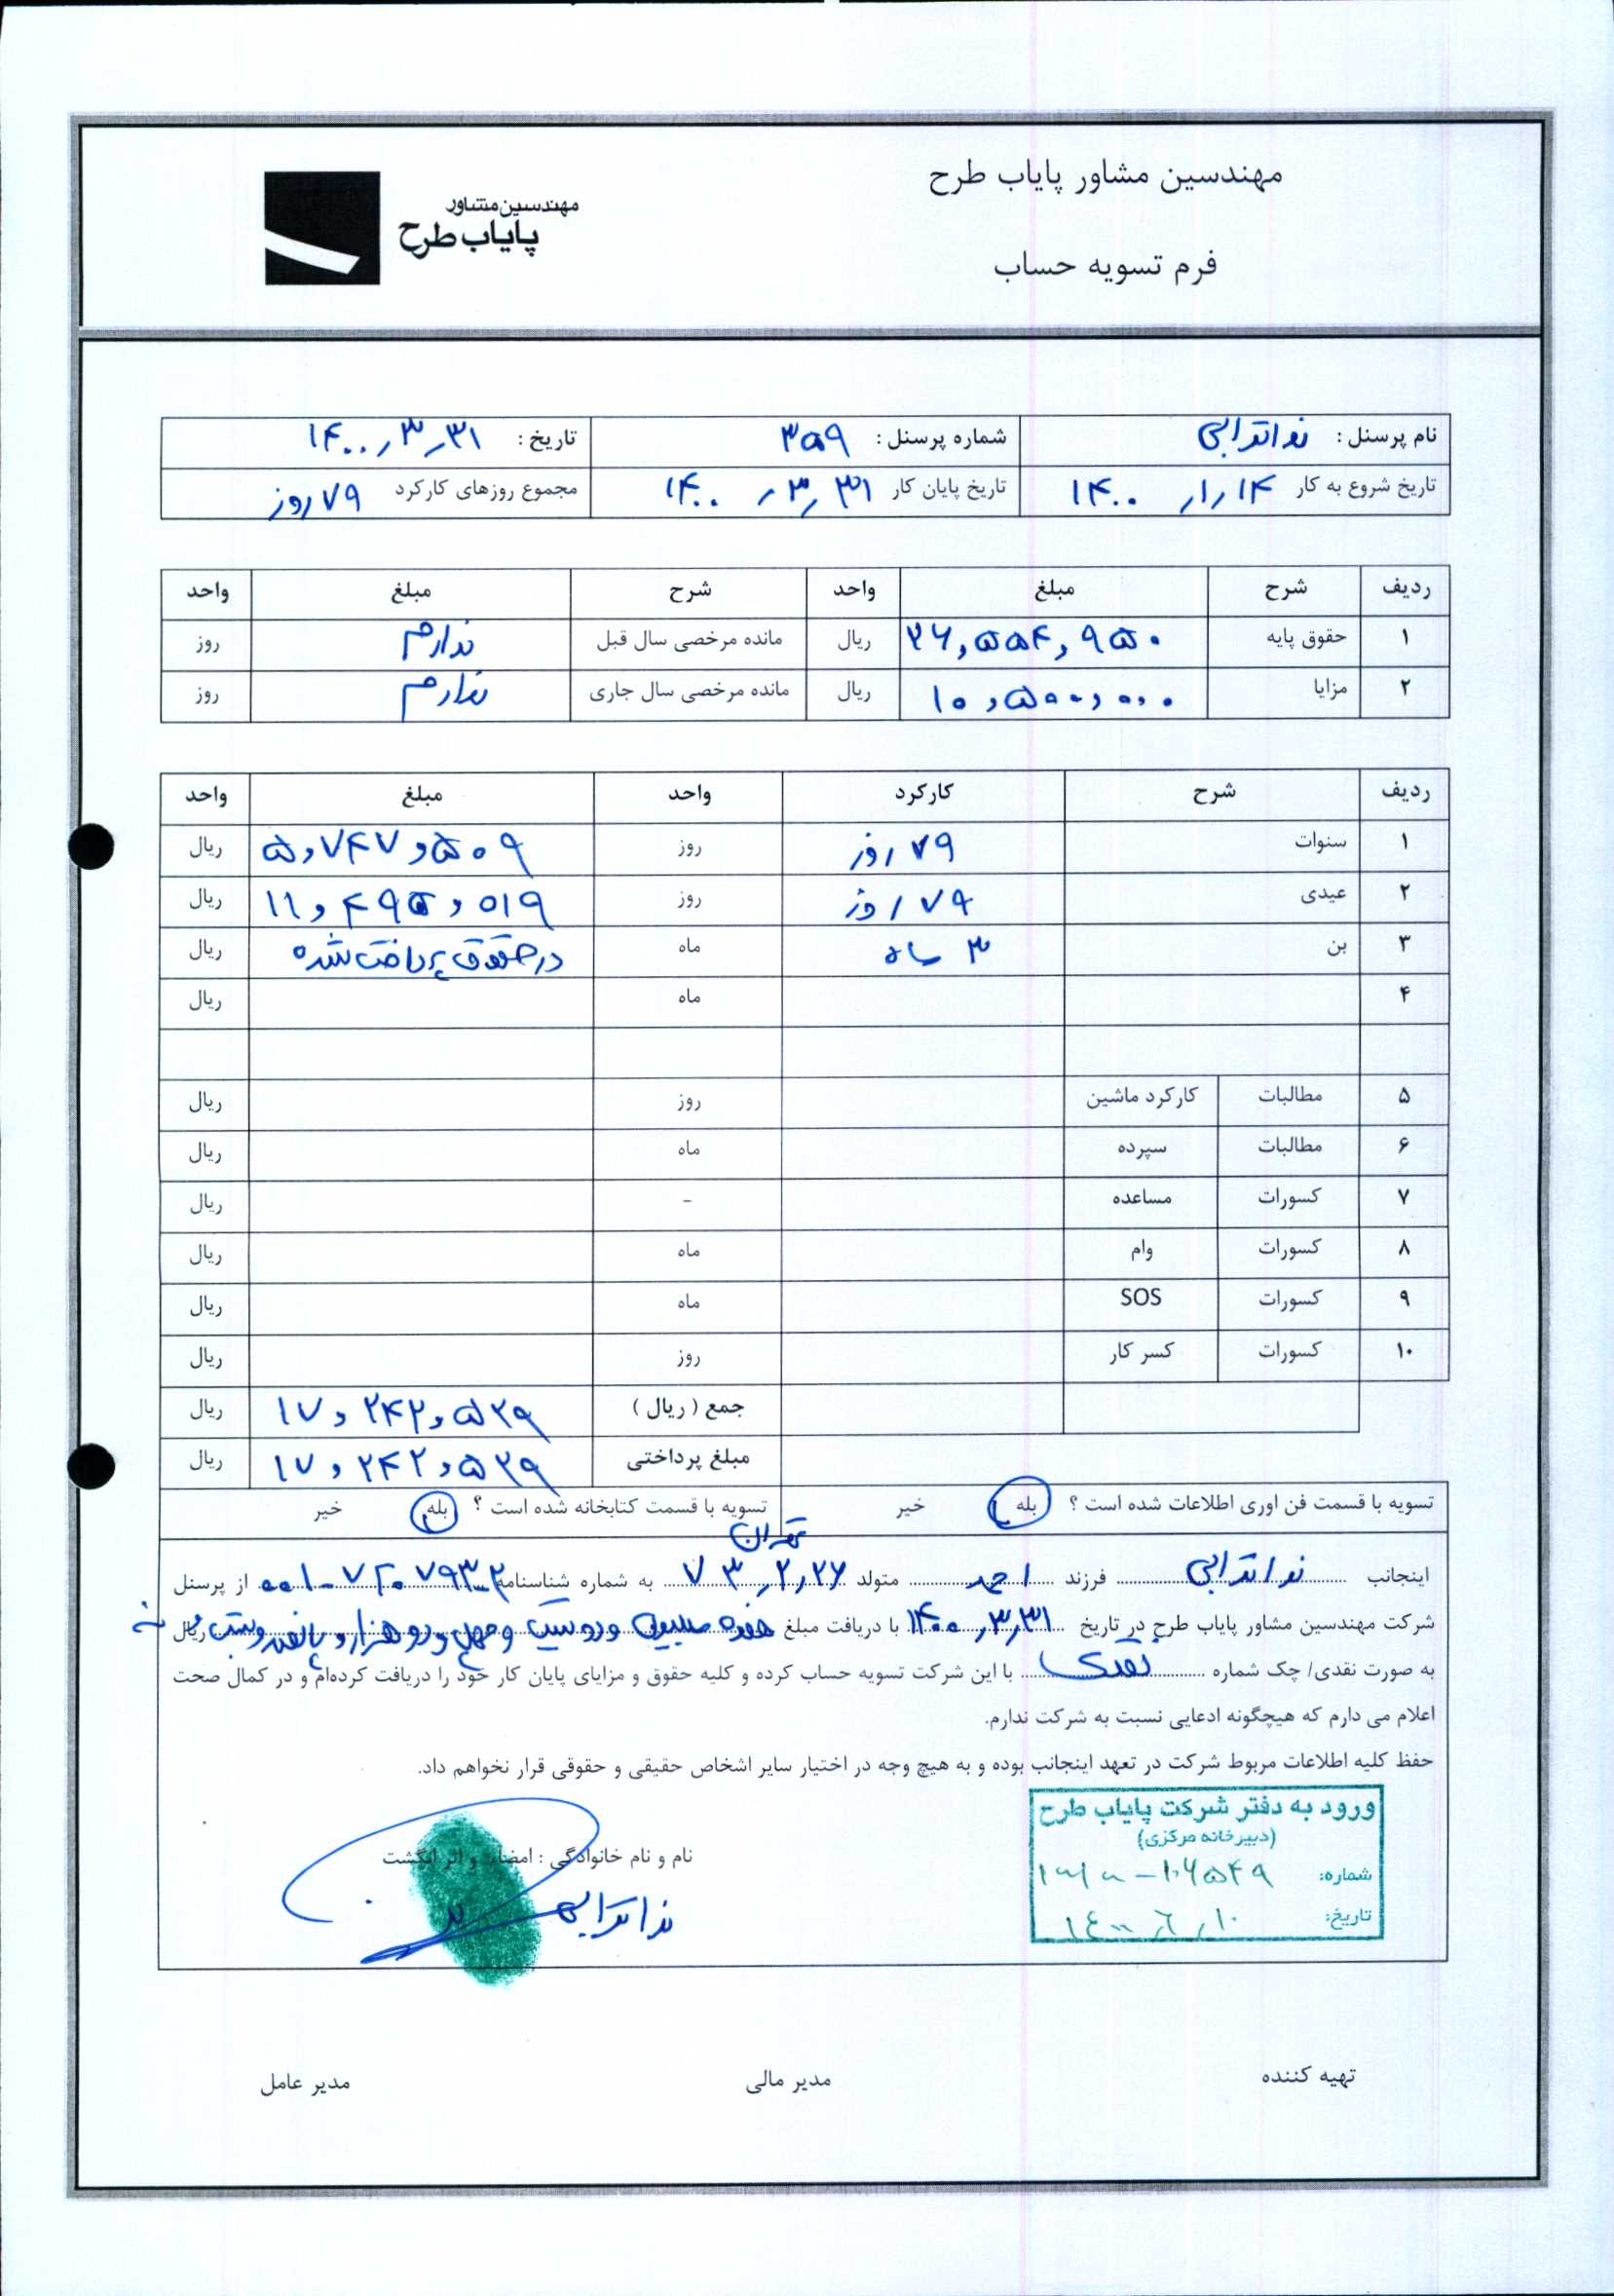 مهندسین مشاور پایاب طرح
مهندسین مشاور
پایاب طرح
فرم تسویه حساب
نام پرسنل : ندا ترابی شماره پرسنل : ۳۵۹ تاریخ : ۱۴۰۰٫۳٫۳۱
تاریخ شروع به کار ۱۴۰۰٫۱٫۱۴ تاریخ پایان کار ۱۴۰۰٫۳٫۳۱ مجموع روزهای کارکرد ۷۹ روز
ردیف شرح مبلغ واحد شرح مبلغ واحد
۱ حقوق پایه ۲۶,۵۵۴,۹۵۰ ریال مانده مرخصی سال قبل ندارم روز
۲ مزایا ۱۰,۵۰۰,۰۰۰ ریال مانده مرخصی سال جاری ندارم روز
ردیف شرح کارکرد واحد مبلغ واحد
۱ سنوات ۷۹ روز روز ۵,۷۴۷,۵۰۹ ریال
۲ عیدی ۷۹ روز روز ۱۱,۴۹۵,۰۱۹ ریال
۳ بن ۳ ماه ماه در حقوق پرداخت شده ریال
۴ ماه ریال
۵ مطالبات کارکرد ماشین روز ریال
۶ مطالبات سپرده ماه ریال
۷ کسورات مساعده - ریال
۸ کسورات وام ماه ریال
۹ کسورات SOS ماه ریال
۱۰ کسورات کسر کار روز ریال
جمع ( ریال ) ۱۷,۲۴۲,۵۲۹ ریال
مبلغ پرداختی ۱۷,۲۴۲,۵۲۹ ریال
تسویه با قسمت فن آوری اطلاعات شده است ؟ بله خیر تسویه با قسمت کتابخانه شده است ؟ بله خیر
تهران
اینجانب ندا ترابی فرزند احمد متولد ۷۳٫۲٫۲۶ به شماره شناسنامه از پرسنل
شرکت مهندسین مشاور پایاب طرح در تاریخ ۱۴۰۰٫۳٫۳۱ با دریافت مبلغ هفده میلیون و دویست و چهل و دو هزار و پانصد و بیست و نه ریال
به صورت نقدی/ چک شماره نقدی با این شرکت تسویه حساب کرده و کلیه حقوق و مزایای پایان کار خود را دریافت کرده‌ام و در کمال صحت
اعلام می دارم که هیچگونه ادعایی نسبت به شرکت ندارم.
حفظ کلیه اطلاعات مربوط شرکت در تعهد اینجانب بوده و به هیچ وجه در اختیار سایر اشخاص حقیقی و حقوقی قرار نخواهم داد.
ورود به دفتر شرکت پایاب طرح
(دبیرخانه مرکزی)
شماره:
تاریخ: ۱۴۰۰٫۶٫۱۰
نام و نام خانوادگی : امضاء و اثر انگشت
ندا ترابی
تهیه کننده مدیر مالی مدیر عامل